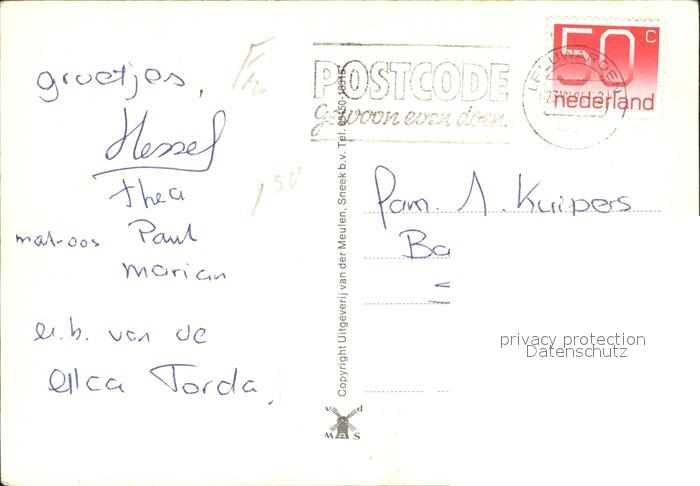 groetjes,
Hessel
thea
mat-oos Paul
marian
a.b. van de
elca Torda.
Fr
1 50
POSTCODE
Gewoon even doen.
LEEUWARDEN
50 c
nederland
Copyright Uitgeverij van der Meulen, Sneek b.v. Tel.
v d
MAS
Fam. J. Kuipers
Ba
privacy protection
Datenschutz